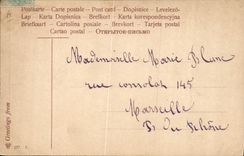 Postkarte — Carte postale — Post card — Dopisnice — Levelező-
Lap — Karta Dopisnica — Brefkort — Karta korespondencyjna
Briefkaart — Cartolina postale — Brevkort — Tarjeta postal
Cartao postal — ОТКРЫТОЕ-ПИСЬМО
Mademoiselle Marie Blanc
rue consolat 145
Marseille
Bs du Rhône
Greetings from